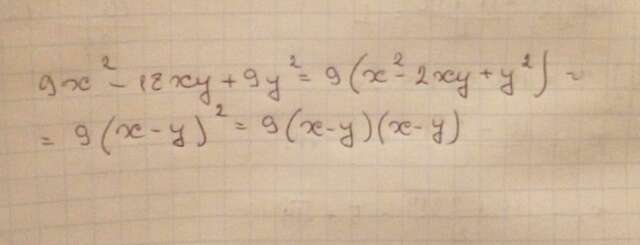 9x² - 18xy + 9y² = 9(x² - 2xy + y²) =
= 9(x - y)² = 9(x - y)(x - y)